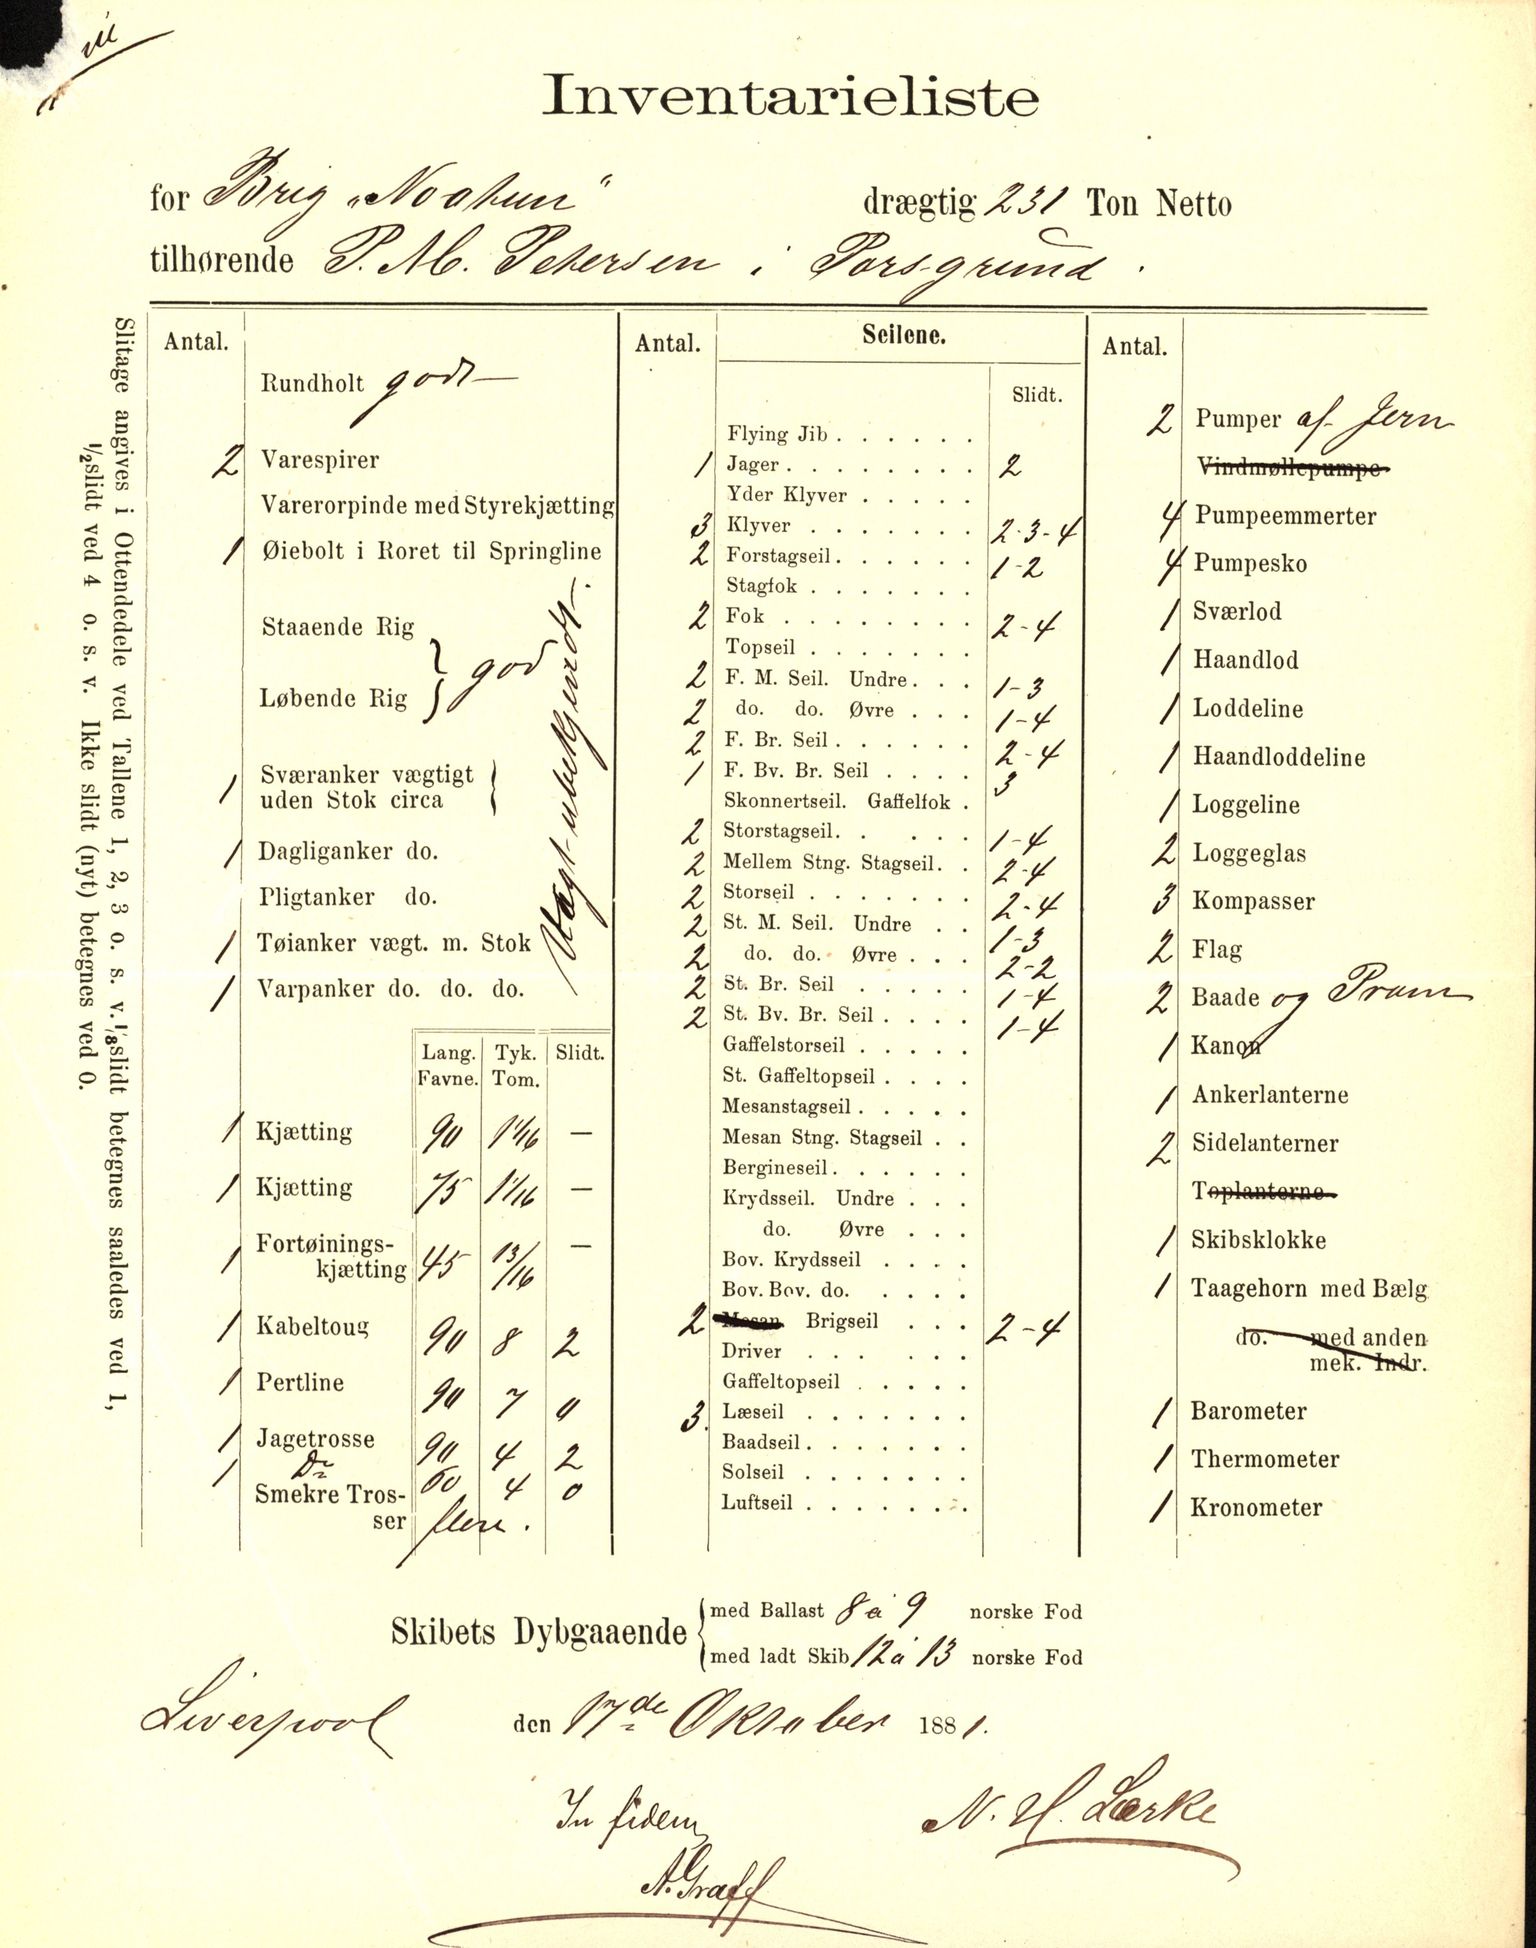 Inventarieliste
for Brig „Noatun" drægtig 231 Ton Netto
tilhørende P. M. Petersen i Porsgrund.
Slitage angives i Ottendedele ved Tallene 1, 2, 3 o. s. v. ⅛ slidt betegnes saaledes ved 1,
½ slidt ved 4 o. s. v. Ikke slidt (nyt) betegnes ved 0.
Antal.
Rundholt godt
2 Varespirer
Varerorpinde med Styrekjætting
1 Øiebolt i Roret til Springline
Staaende Rig } god
Løbende Rig
1 Sværanker vægtigt
uden Stok circa
1 Dagliganker do.
Pligtanker do.
1 Tøianker vægt. m. Stok
1 Varpanker do. do. do.
Vægt ubekjendt.
Lang. Favne. Tyk. Tom. Slidt.
1 Kjætting 90 1 1/16 —
1 Kjætting 75 1 1/16 —
1 Fortøinings-
kjætting 45 13/16 —
1 Kabeltoug 90 8 2
1 Pertline 90 7 0
1 Jagetrosse 90 4 2
1 Do 60 4 0
Smekre Tros-
ser flere.
Antal. Seilene.
Slidt.
Flying Jib . . . . . .
1 Jager . . . . . . . . 2
Yder Klyver . . . . .
3 Klyver . . . . . . . 2-3-4
2 Forstagseil . . . . . . 1-2
Stagfok . . . . . . .
2 Fok . . . . . . . . 2-4
Topseil . . . . . . .
2 F. M. Seil. Undre . . . 1-3
2 do. do. Øvre . . . 1-4
2 F. Br. Seil . . . . . . 2-4
1 F. Bv. Br. Seil . . . . 3
Skonnertseil. Gaffelfok .
2 Storstagseil . . . . . 1-4
2 Mellem Stng. Stagseil . . 2-4
2 Storseil . . . . . . . 2-4
2 St. M. Seil. Undre . . 1-3
2 do. do. Øvre . . . 2-2
2 St. Br. Seil . . . . . 1-4
2 St. Bv. Br. Seil . . . . 1-4
Gaffelstorseil . . . . .
St. Gaffeltopseil . . . .
Mesanstagseil . . . . .
Mesan Stng. Stagseil . .
Bergineseil . . . . . .
Krydsseil. Undre . . .
do. Øvre . . .
Bov. Krydsseil . . . .
Bov. Bov. do. . . . .
2 Mesan Brigseil . . . 2-4
Driver . . . . . .
Gaffeltopseil . . . . .
3. Læseil . . . . . . .
Baadseil . . . . . . .
Solseil . . . . . . .
Luftseil . . . . . . .
Antal.
2 Pumper af Jern
Vindmøllepumpe
4 Pumpeemmerter
4 Pumpesko
1 Sværlod
1 Haandlod
1 Loddeline
1 Haandloddeline
1 Loggeline
2 Loggeglas
3 Kompasser
2 Flag
2 Baade og Pram
1 Kanon
1 Ankerlanterne
2 Sidelanterner
Toplanterne
1 Skibsklokke
1 Taagehorn med Bælg
do. med anden
mek. Indr.
1 Barometer
1 Thermometer
1 Kronometer
Skibets Dybgaaende { med Ballast 8 à 9 norske Fod
med ladt Skib 12 à 13 norske Fod
Liverpool den 17de Oktober 1881.
In fidem N. H. Lærke
A. Graff